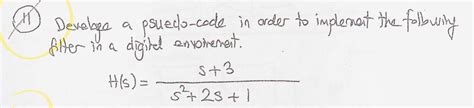 H Develope a psuedo-code in order to implement the following
filter in a digital envoirement.
H(s) = s+3 / s²+2s+1